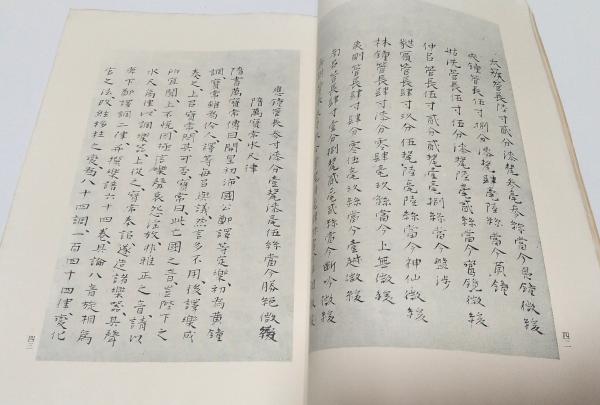 太蔟管長陸寸貳分漆氂叁毫叁絲當今夷鐘
夾鐘管長伍寸捌分漆氂肆毫陸絲當今黃鐘
姑洗管長伍寸伍分漆氂陸毫貳絲當今鸞鏡微緩
仲呂管長伍寸貳分貳氂壹毫捌絲當今盤涉
蕤賓管長肆寸玖分伍氂陸毫陸絲當今神仙微緩
林鐘管長肆寸漆分零肆毫玖絲當今上無微緩
夷則管長肆寸肆分零伍毫玖絲當今壹越微緩
南呂管長肆寸壹分捌氂貳毫貳絲當今斷吟微緩
應鐘管長叁寸漆分壹氂漆毫伍絲當今勝絕微緩
隋萬寶常水尺律
隋書萬寶常傳曰開皇初沛國公鄭譯等定樂初為黃鐘
調寶常雖為伶人譯等每召與議然言多不用後譯樂成
奏之上召寶常問其可否寶常曰此亡國之音豈陛下之
所宜聞上不悅寶常因極言樂聲哀怨淫放非雅正之音請以
水尺為律以調樂器上從之寶常奉詔遂造諸樂器其聲
率下鄭譯調二律并撰樂譜六十四卷具論八音旋相為
宮之法改絃移柱之變為八十四調一百四十四律變化
四二
四三